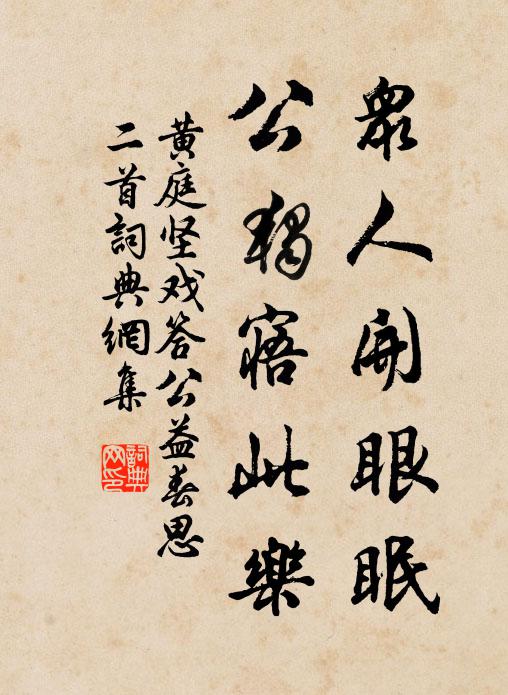 眾人開眼眠
公獨寤此樂
黃庭坚戏答公益春思
二首詞典網集
詞典
网印